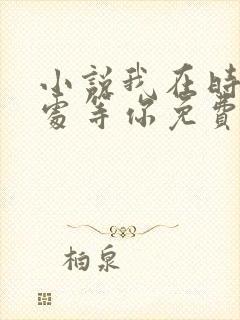 小説我在時
處等你免費
柏泉